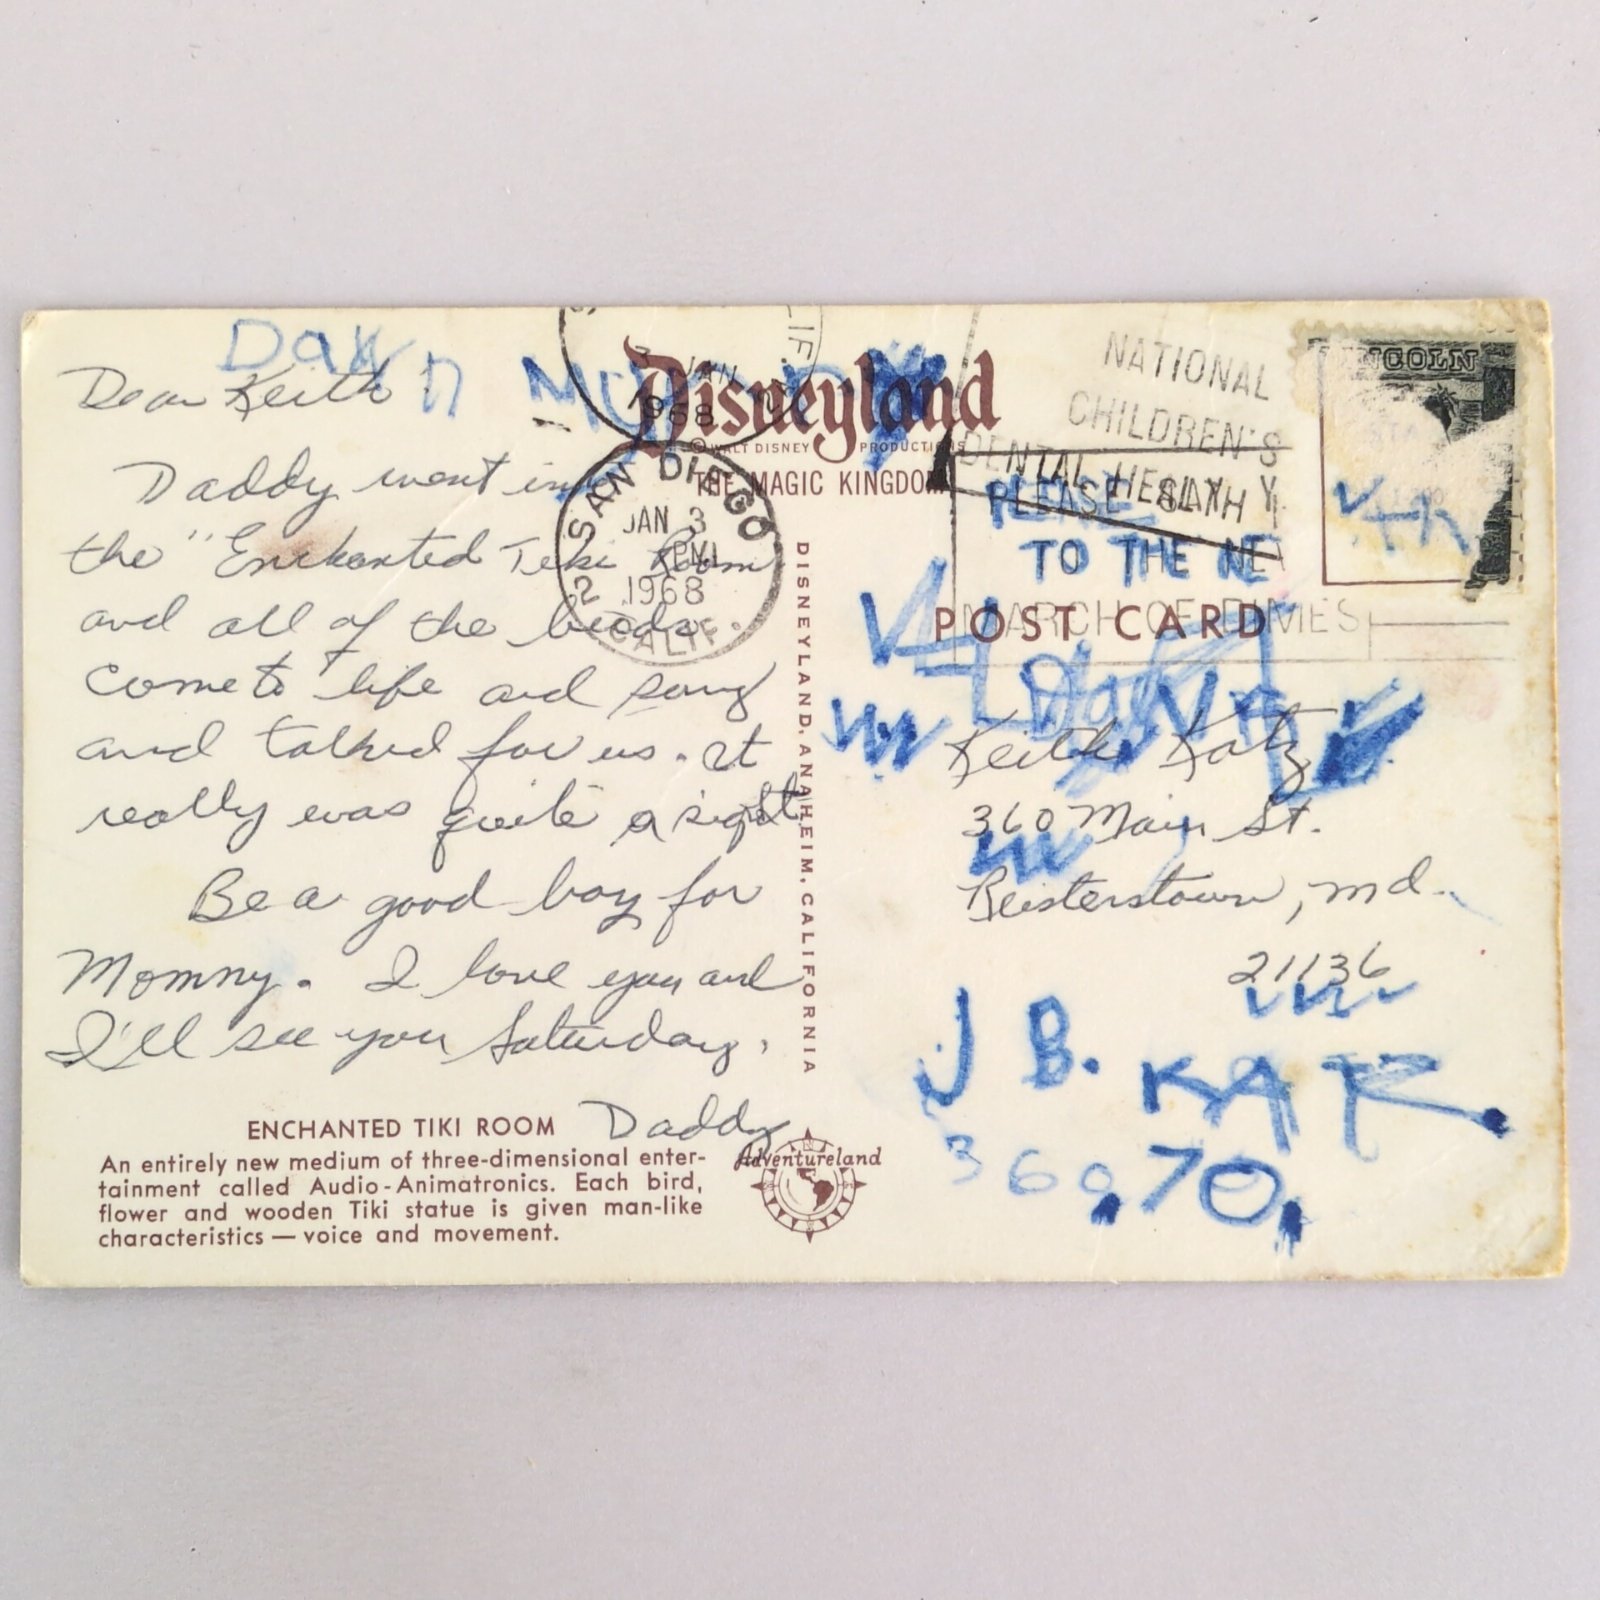 Dawn
Dear Keith
Daddy went in
the "Enchanted Tiki Room
and all of the birds
come to life and sang
and talked for us. It
really was quite a sight
Be a good boy for
Mommy. I love you and
I'll see you Saturday.
Daddy
ENCHANTED TIKI ROOM
An entirely new medium of three-dimensional enter-
tainment called Audio-Animatronics. Each bird,
flower and wooden Tiki statue is given man-like
characteristics — voice and movement.
Adventureland
Disneyland
© WALT DISNEY PRODUCTIONS
THE MAGIC KINGDOM
JAN
1968
SAN DIEGO
JAN 3
PM
2 1968
CALIF.
DISNEYLAND, ANAHEIM, CALIFORNIA
NATIONAL
CHILDREN'S
DENTAL HEALTH
PLEASE
TO THE
MARCH OF DIMES
LINCOLN
POST CARD
Keith Katz
360 Main St.
Reisterstown, Md.
21136
J B.
360.70.